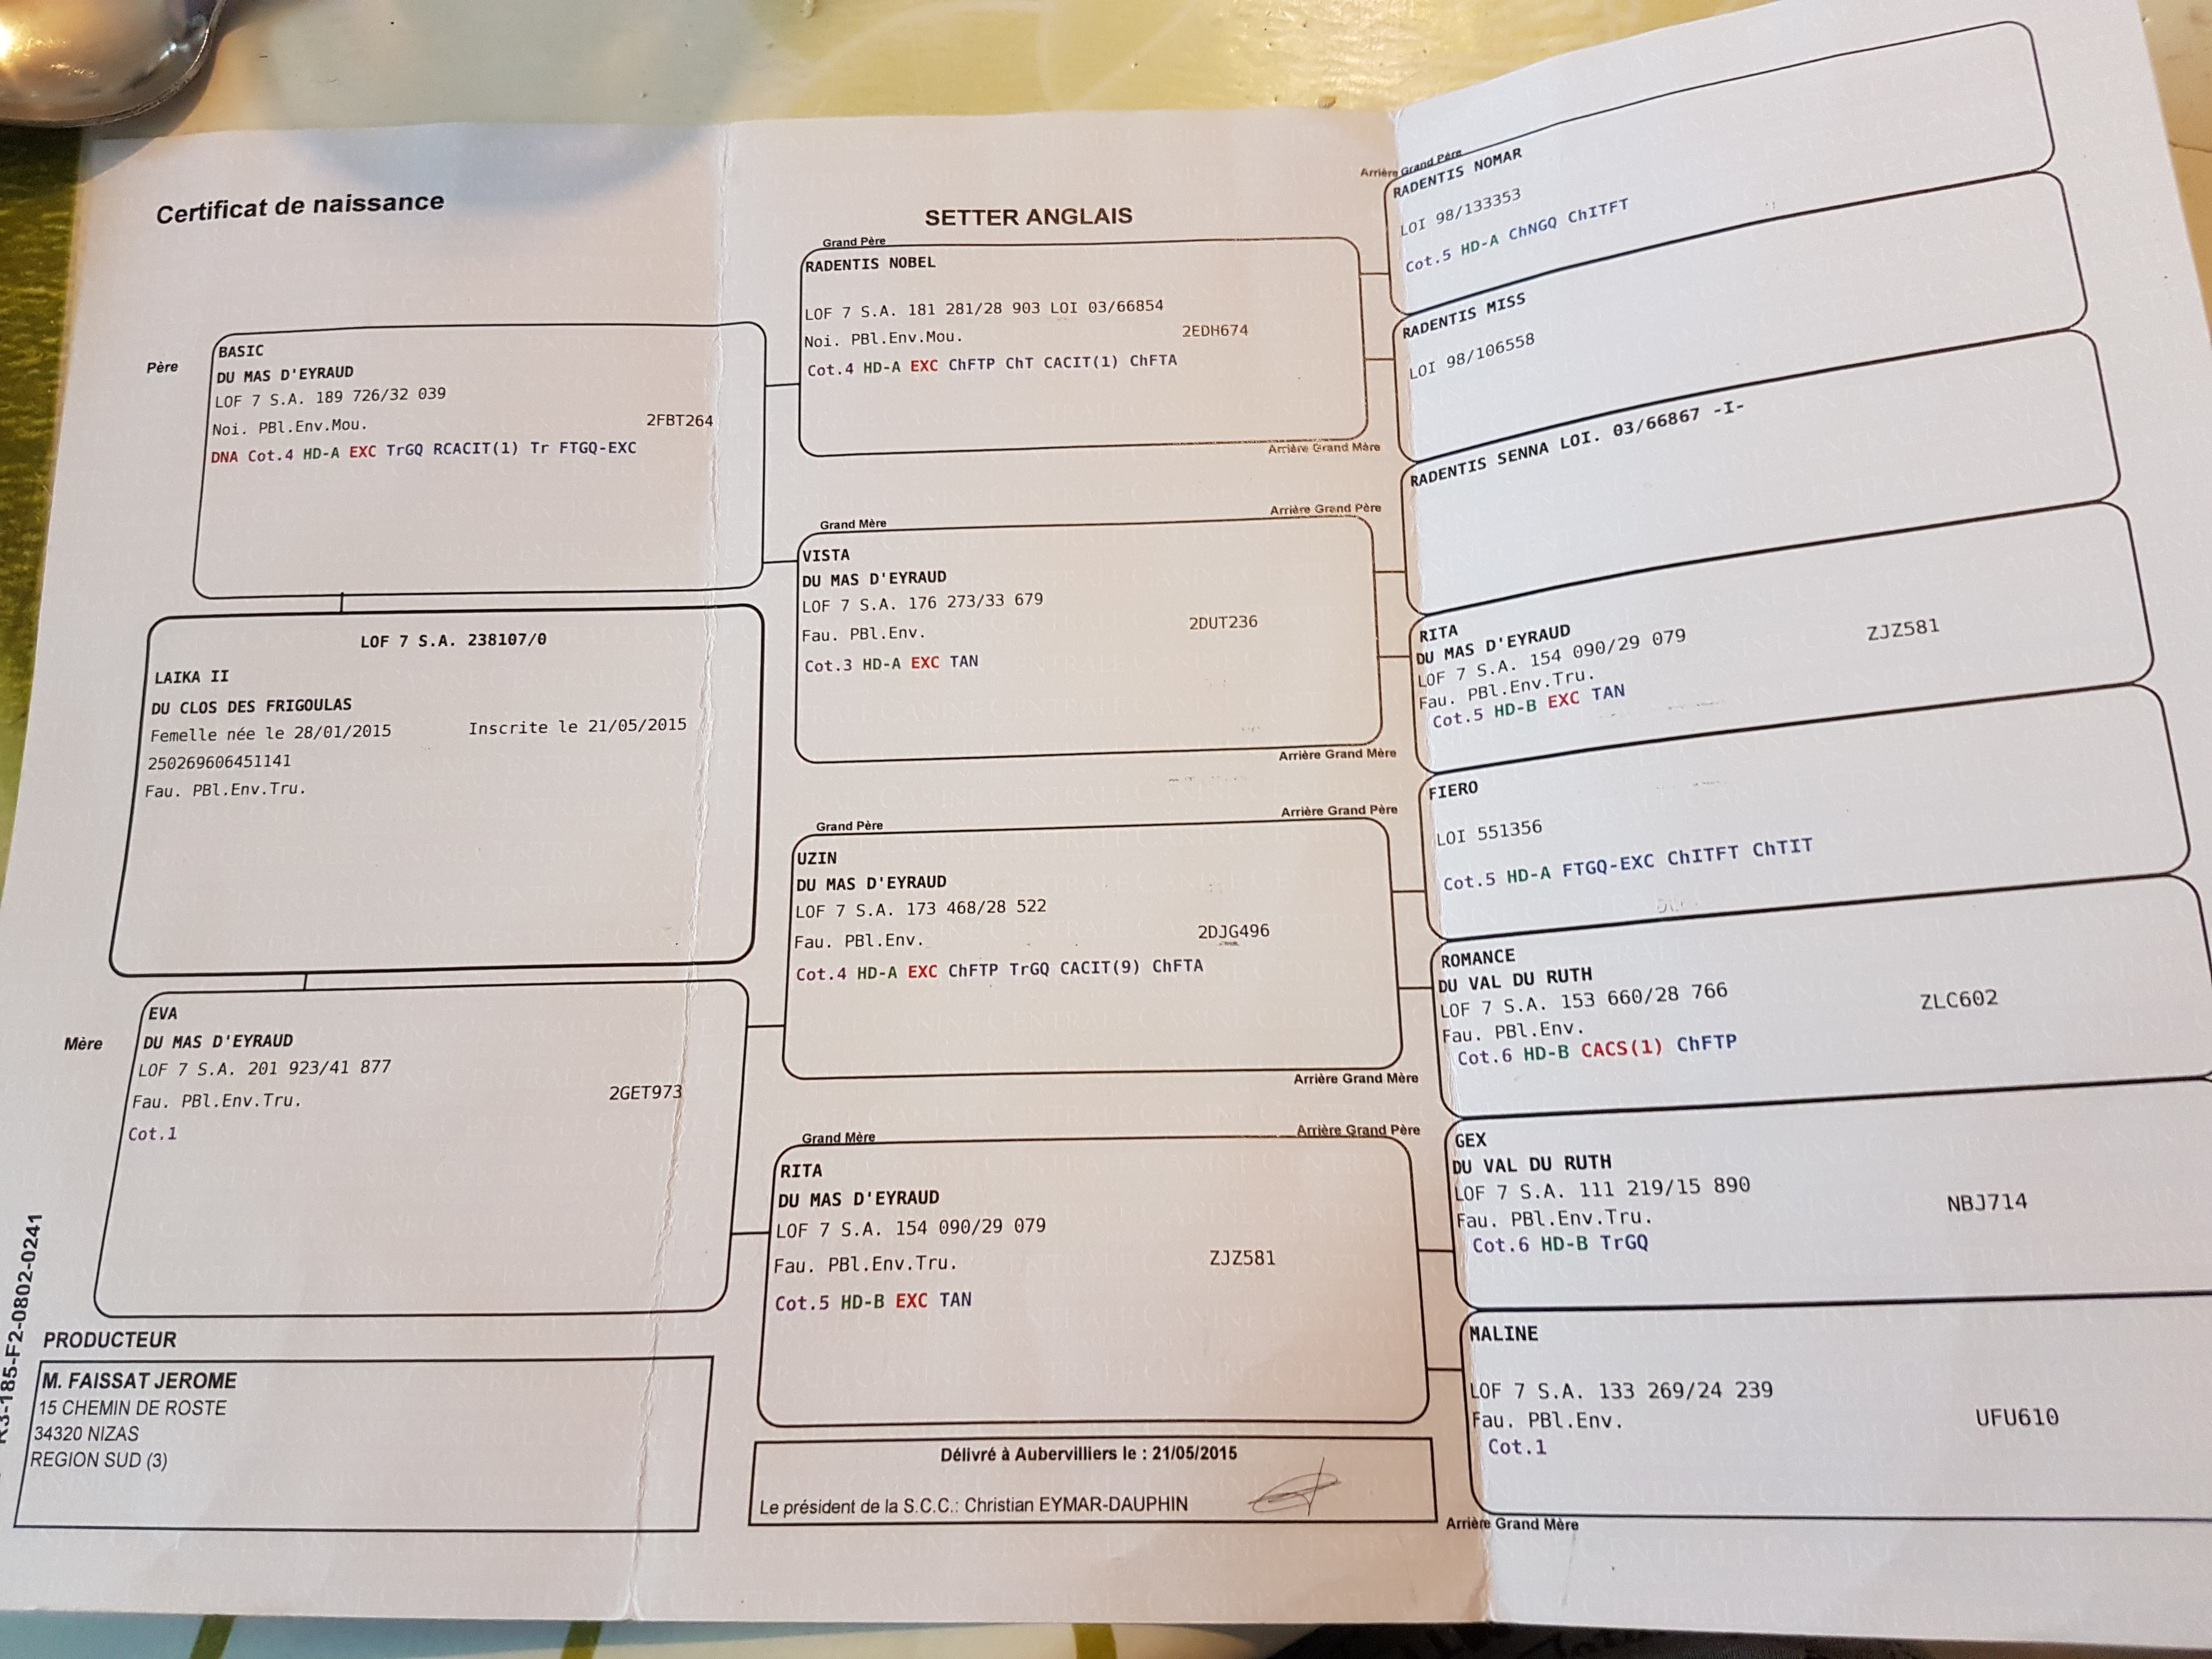 Certificat de naissance
SETTER ANGLAIS
Père
BASIC
DU MAS D'EYRAUD
LOF 7 S.A. 189 726/32 039
Noi. PBl.Env.Mou.
2FBT264
DNA Cot.4 HD-A EXC TrGQ RCACIT(1) Tr FTGQ-EXC
LOF 7 S.A. 238107/0
LAIKA II
DU CLOS DES FRIGOULAS
Femelle née le 28/01/2015 Inscrite le 21/05/2015
250269606451141
Fau. PBl.Env.Tru.
Mère
EVA
DU MAS D'EYRAUD
LOF 7 S.A. 201 923/41 877
Fau. PBl.Env.Tru.
2GET973
Cot.1
185-F2-0802-0241
PRODUCTEUR
M. FAISSAT JEROME
15 CHEMIN DE ROSTE
34320 NIZAS
REGION SUD (3)
Grand Père
RADENTIS NOBEL
LOF 7 S.A. 181 281/28 903 LOI 03/66854
Noi. PBl.Env.Mou.
2EDH674
Cot.4 HD-A EXC ChFTP ChT CACIT(1) ChFTA
Arrière Grand Mère
Grand Mère
Arrière Grand Père
VISTA
DU MAS D'EYRAUD
LOF 7 S.A. 176 273/33 679
Fau. PBl.Env.
2DUT236
Cot.3 HD-A EXC TAN
Arrière Grand Mère
Grand Père
Arrière Grand Père
UZIN
DU MAS D'EYRAUD
LOF 7 S.A. 173 468/28 522
Fau. PBl.Env.
2DJG496
Cot.4 HD-A EXC ChFTP TrGQ CACIT(9) ChFTA
Arrière Grand Mère
Grand Mère
Arrière Grand Père
RITA
DU MAS D'EYRAUD
LOF 7 S.A. 154 090/29 079
Fau. PBl.Env.Tru.
ZJZ581
Cot.5 HD-B EXC TAN
Délivré à Aubervilliers le : 21/05/2015
Le président de la S.C.C.: Christian EYMAR-DAUPHIN
Arrière Grand Père
RADENTIS NOMAR
LOI 98/133353
Cot.5 HD-A ChNGQ ChITFT
RADENTIS MISS
LOI 98/106558
RADENTIS SENNA LOI. 03/66867 -I-
RITA
DU MAS D'EYRAUD
LOF 7 S.A. 154 090/29 079
Fau. PBl.Env.Tru.
ZJZ581
Cot.5 HD-B EXC TAN
FIERO
LOI 551356
Cot.5 HD-A FTGQ-EXC ChITFT ChTIT
ROMANCE
DU VAL DU RUTH
LOF 7 S.A. 153 660/28 766
Fau. PBl.Env.
ZLC602
Cot.6 HD-B CACS(1) ChFTP
GEX
DU VAL DU RUTH
LOF 7 S.A. 111 219/15 890
Fau. PBl.Env.Tru.
NBJ714
Cot.6 HD-B TrGQ
MALINE
LOF 7 S.A. 133 269/24 239
Fau. PBl.Env.
UFU610
Cot.1
Arrière Grand Mère